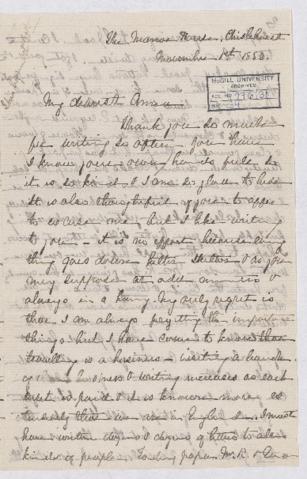 The Manor House, Chislehurst
November 1st 1883.
McGILL UNIVERSITY
ARCHIVES
ACC. NO.
My dearest Anna
Thank you so much
for writing so often, you have
I know your own hands full, so
it is so kind & I am so glad to hear
It is also thoughtful of you to offer
to excuse me, but I like writing
to you — it is no effort because every
thing goes down helter skelter & as you
may suppose at odd &
always in a hurry. My only regret is
that I am always forgetting the important
things but I have come to know that
travelling is a business — visiting a branch
of business & writing increases as each
visit is paid & it is known more
that we are in England. I must
have written dozens & dozens of letters to all
kinds of people. Today papa, Mr. R. &